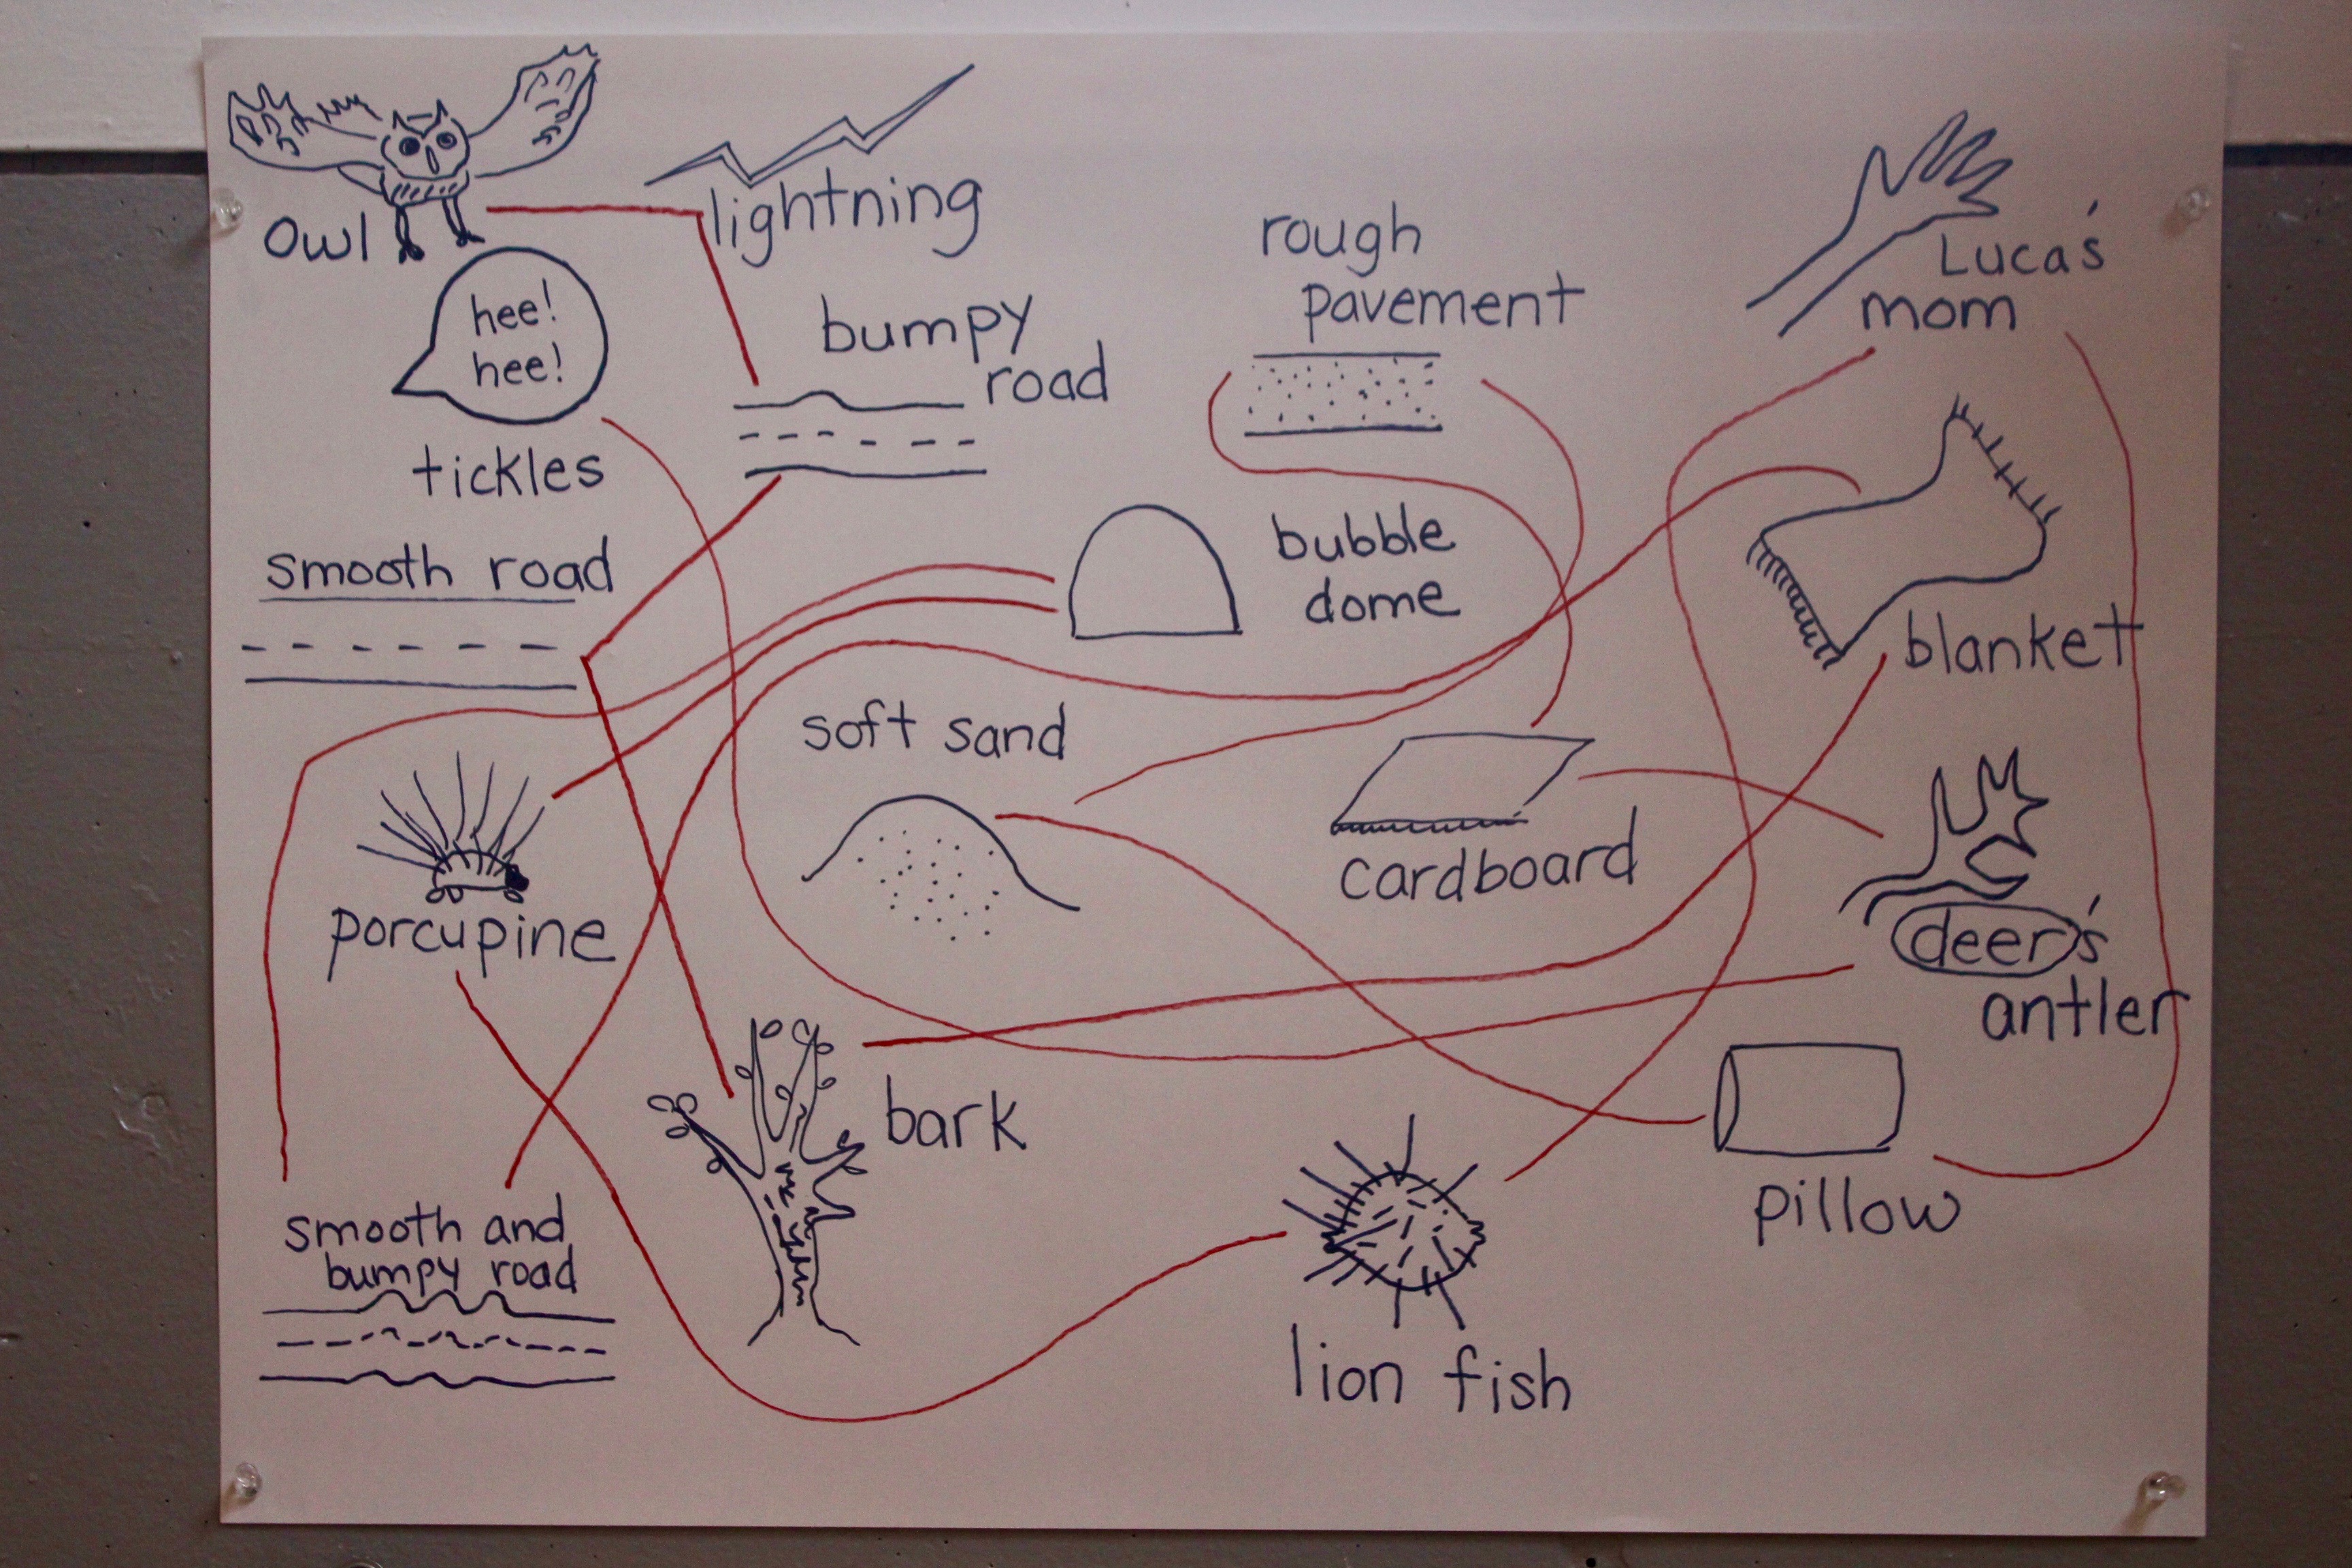 owl
lightning
hee!
hee!
tickles
bumpy
road
rough
pavement
Luca's
mom
smooth road
bubble
dome
blanket
soft sand
cardboard
porcupine
deer's
antler
bark
pillow
smooth and
bumpy road
lion fish